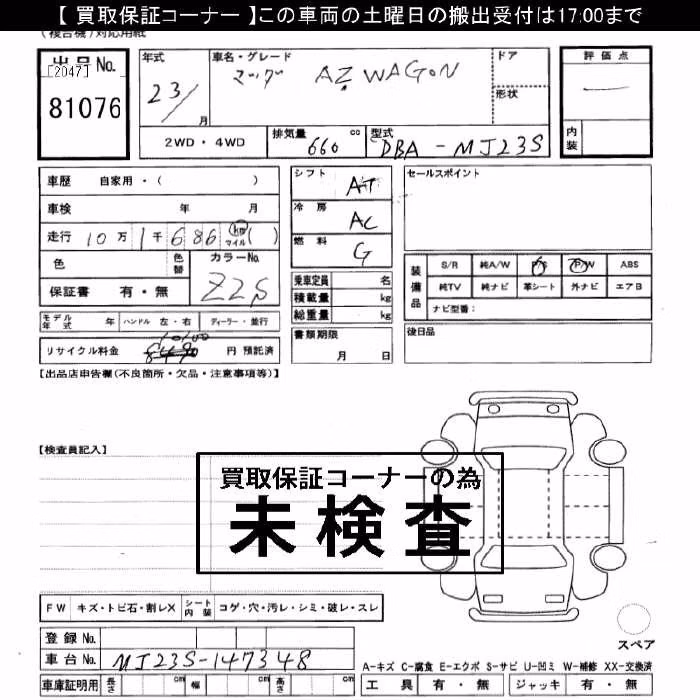 【 買取保証コーナー 】この車両の土曜日の搬出受付は17:00まで
(複合機)対応用紙
出品No.
[2047]
81076
年式
23/
月
車名・グレード
マツダ AZ WAGON
ドア
形状
評価点
内装
2WD・4WD
排気量 660 cc
型式 DBA-MJ23S
車歴 自家用・( )
車検 年 月
走行 10万1千686 km マイル ( )
色
色替
カラーNo.
Z2S
保証書 有・無
シフト AT
冷房 AC
燃料 G
乗車定員 名
積載量 kg
総重量 kg
セールスポイント
装備品
S/R 純A/W P/S P/W ABS
純TV 純ナビ 革シート 外ナビ エアB
ナビ型番:
モデル年式 年 ハンドル 左・右 ディーラー・並行
リサイクル料金 円 預託済
書類期限
月 日
後日品
【出品店申告欄(不良箇所・欠品・注意事項等)】
【検査員記入】
買取保証コーナーの為
未検査
FW キズ・トビ石・割レX シート内装 コゲ・穴・汚レ・シミ・破レ・スレ
登録No.
車台No. MJ23S-147348
スペア
A-キズ C-腐食 E-エクボ S-サビ U-凹ミ W-補修 XX-交換済
車庫証明用 長さ cm 幅 cm 高さ cm
工具 有・無 ジャッキ 有・無